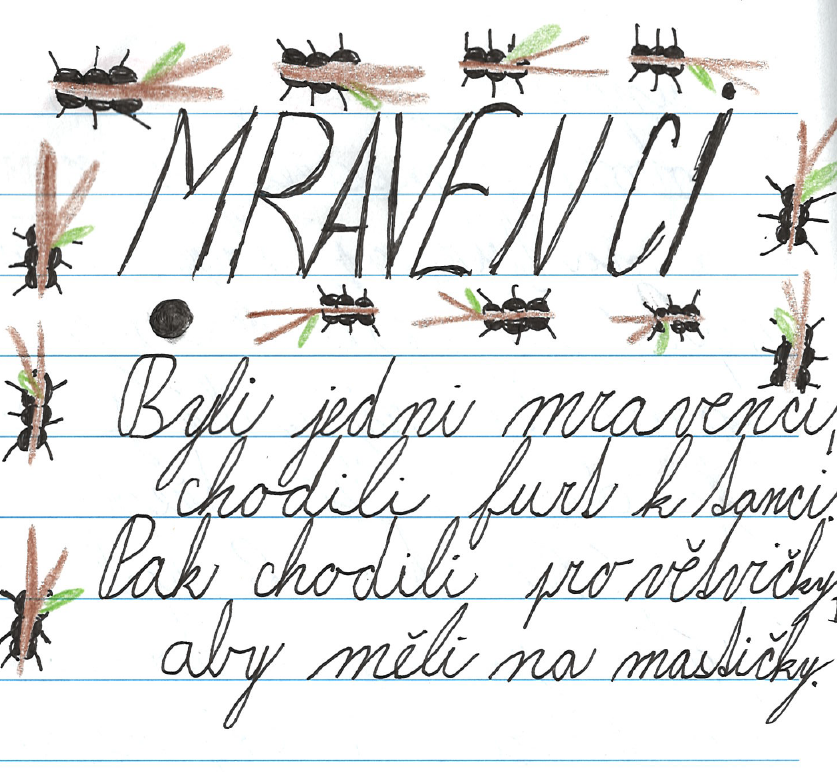 MRAVENCI
Byli jedni mravenci,
chodili furt k tanci.
Pak chodili pro větvičky,
aby měli na mastičky.